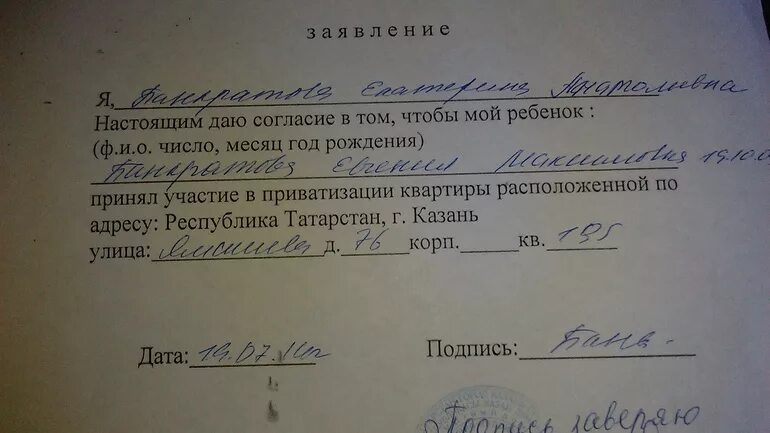 заявление
Я, Панкратова Екатерина Анатолиевна
Настоящим даю согласие в том, чтобы мой ребенок :
(ф.и.о. число, месяц год рождения)
Панкратова Евгения Максимовна 19.10.0
принял участие в приватизации квартиры расположенной по
адресу: Республика Татарстан, г. Казань
улица: Ямашева д. 76 корп. кв. 195
Дата: 19.07. Подпись: Панк
Подпись заверяю